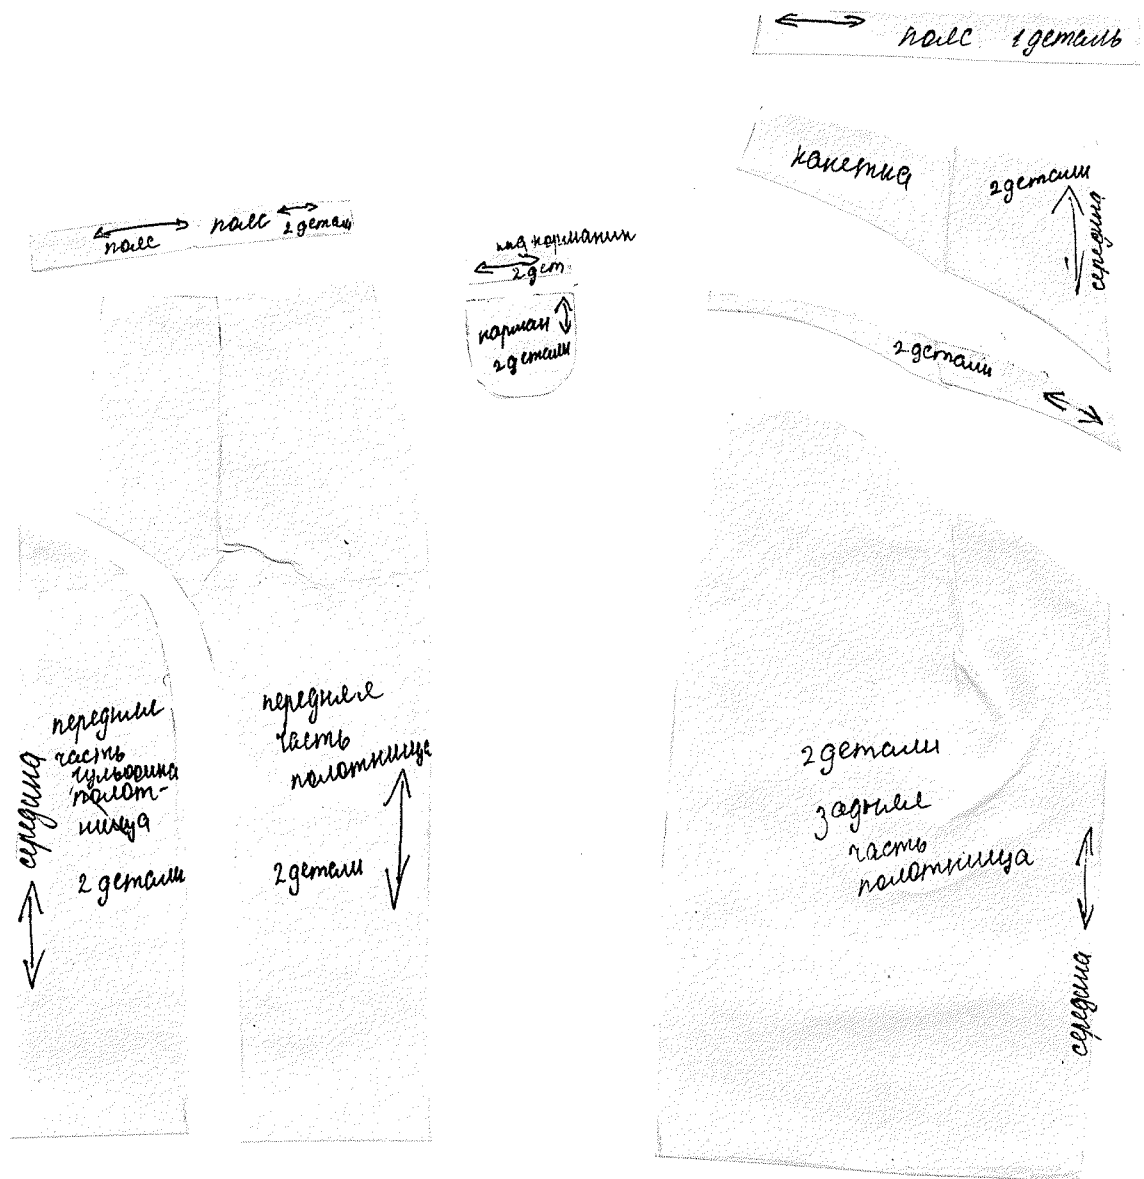 пояс 1 деталь
кокетка
2 детали
середина
пояс
пояс
2 детали
под карманик
2 дет
карман
2 детали
2 детали
передняя
часть
полот-
ница
2 детали
середина
передняя
часть
полотнища
2 детали
2 детали
задняя
часть
полотнища
середина